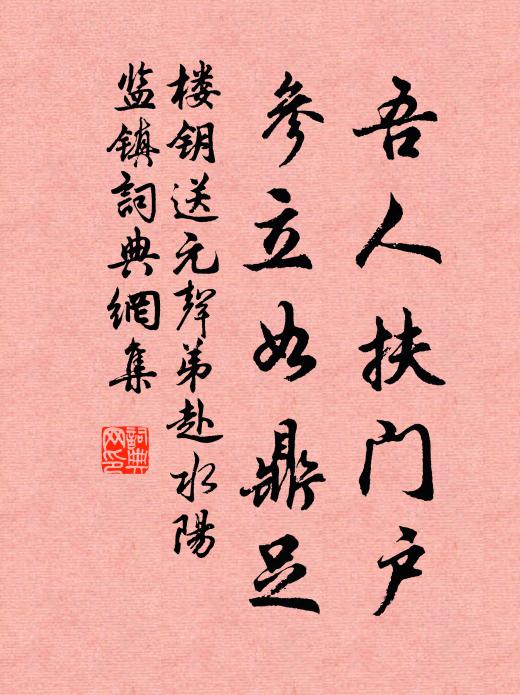 吾人扶门户
参立如鼎足
楼钥送元聲弟赴水陽
监镇詞典網集
詞典
网印